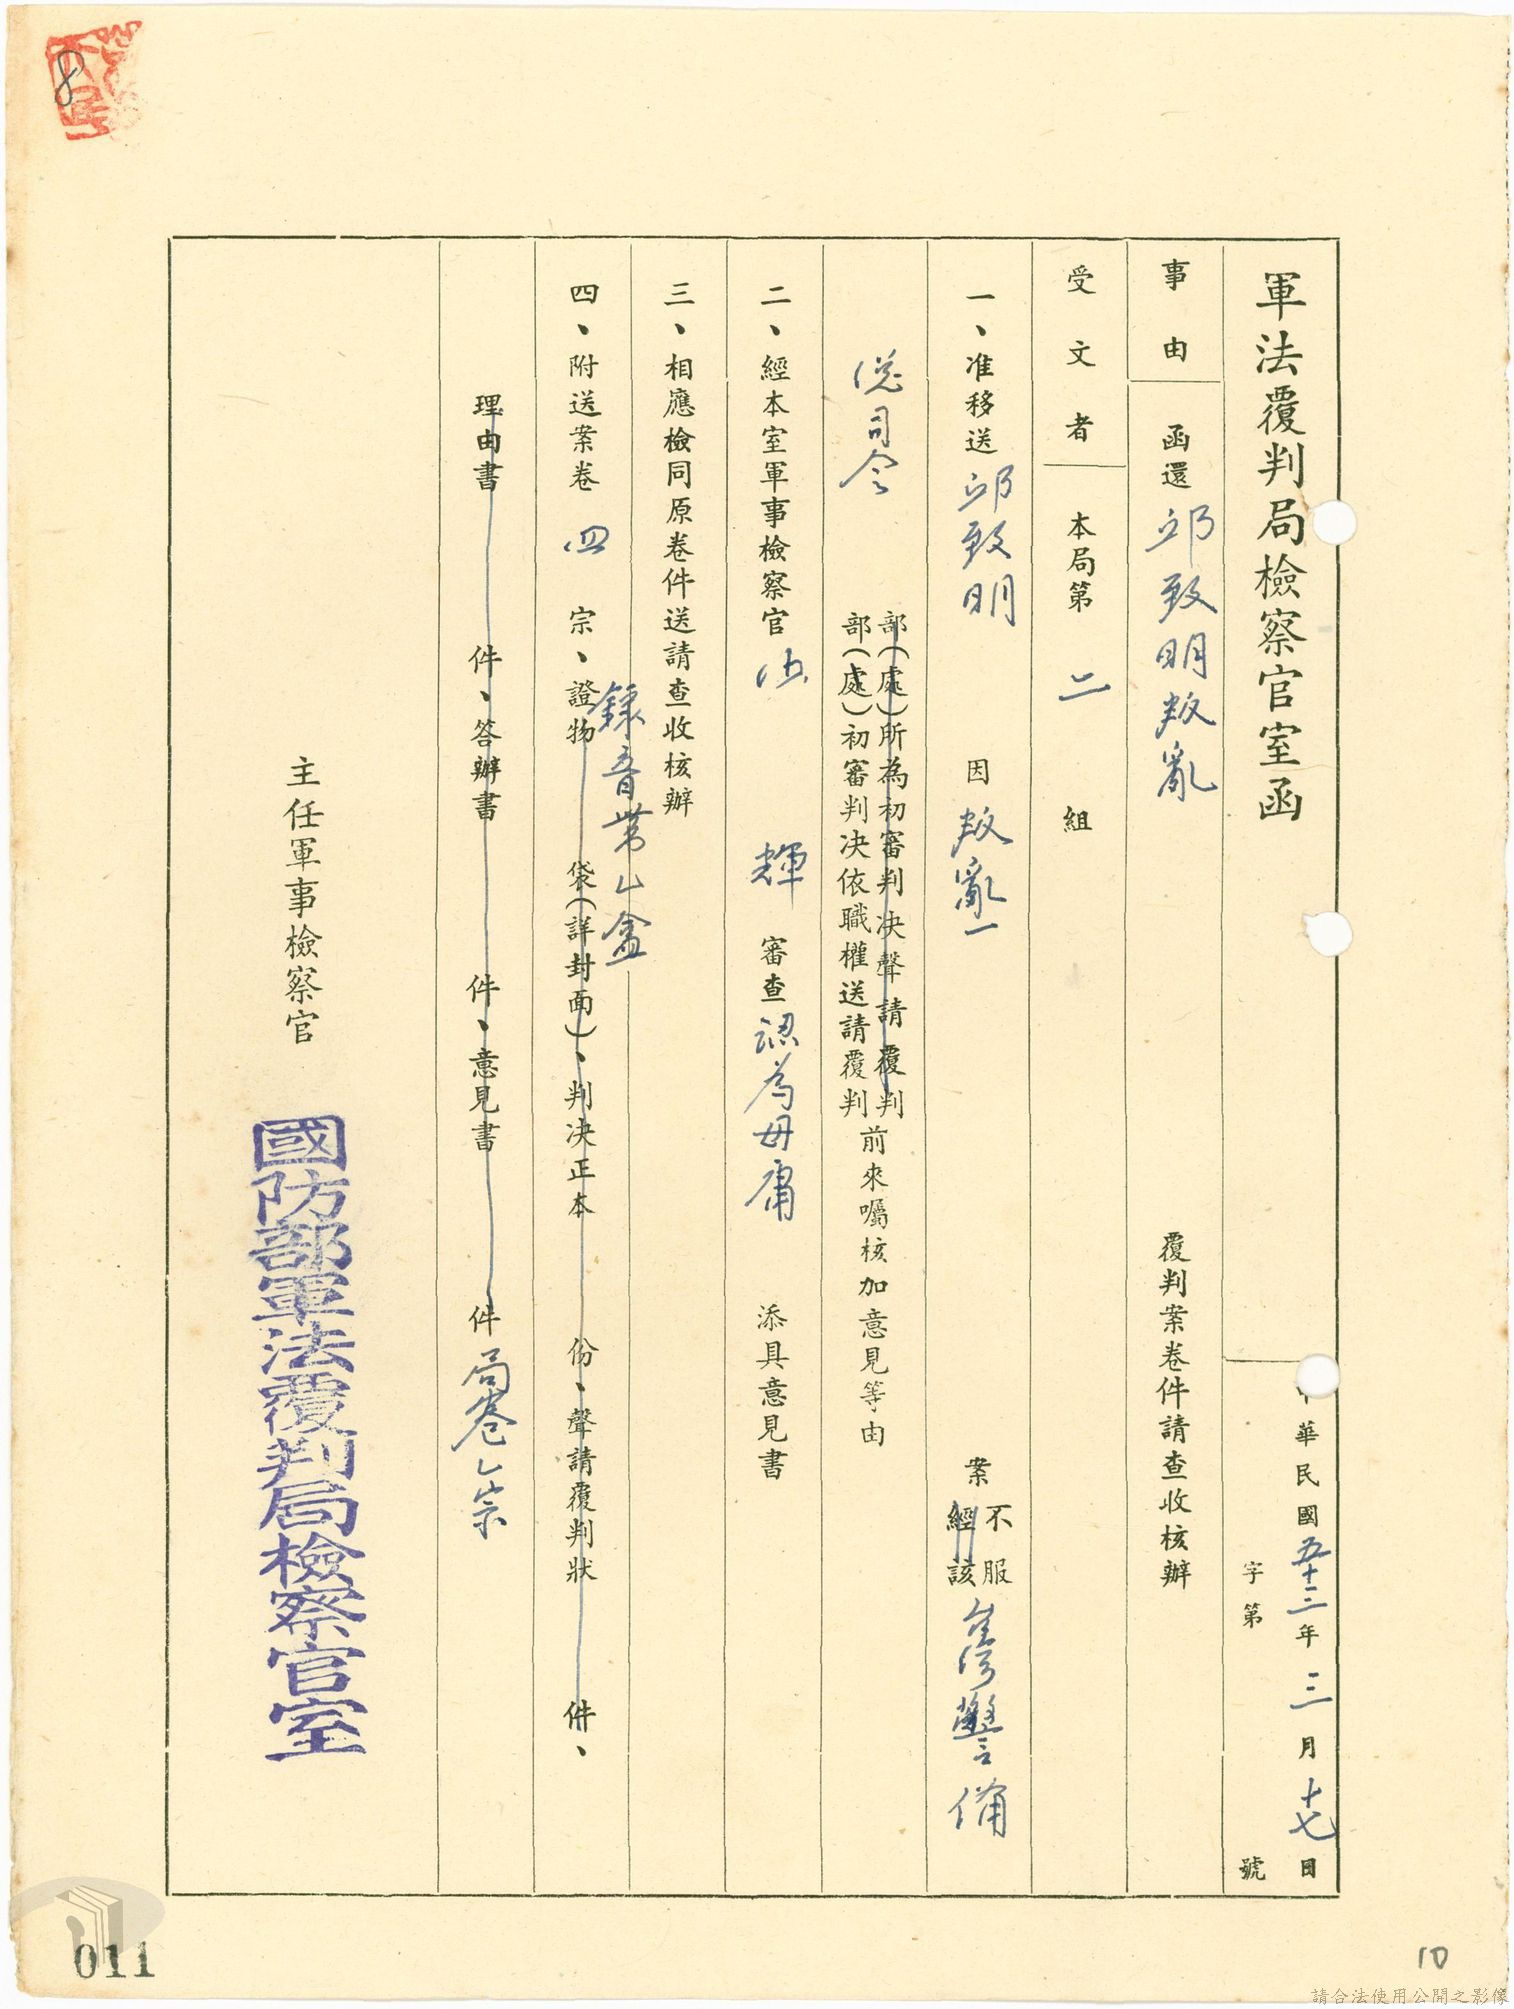 軍法覆判局檢察官室函
中華民國五十三年三月十七日
字第 號
事由 函還邱致明叛亂 覆判案卷件請查收核辦
受文者 本局第二組
一、准移送邱致明因叛亂一案不服經該臺灣警備
總司令部(處)所為初審判決聲請覆判
部(處)初審判決依職權送請覆判前來囑核加意見等由
二、經本室軍事檢察官 輝審查認為毋庸添具意見書
三、相應檢同原卷件送請查收核辦
四、附送案卷四宗、證物 袋(詳封面)、判決正本 份、聲請覆判狀 件、
錄音帶乙盒
理由書 件、答辯書 件、意見書 件局卷乙宗
主任軍事檢察官
國防部軍法覆判局檢察官室
8
011
10
請合法使用公開之影像